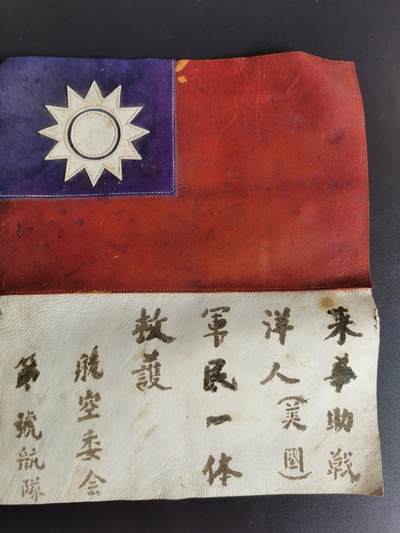 来華助戰
洋人(美國)
軍民一体
救護
航空委会
第號航隊